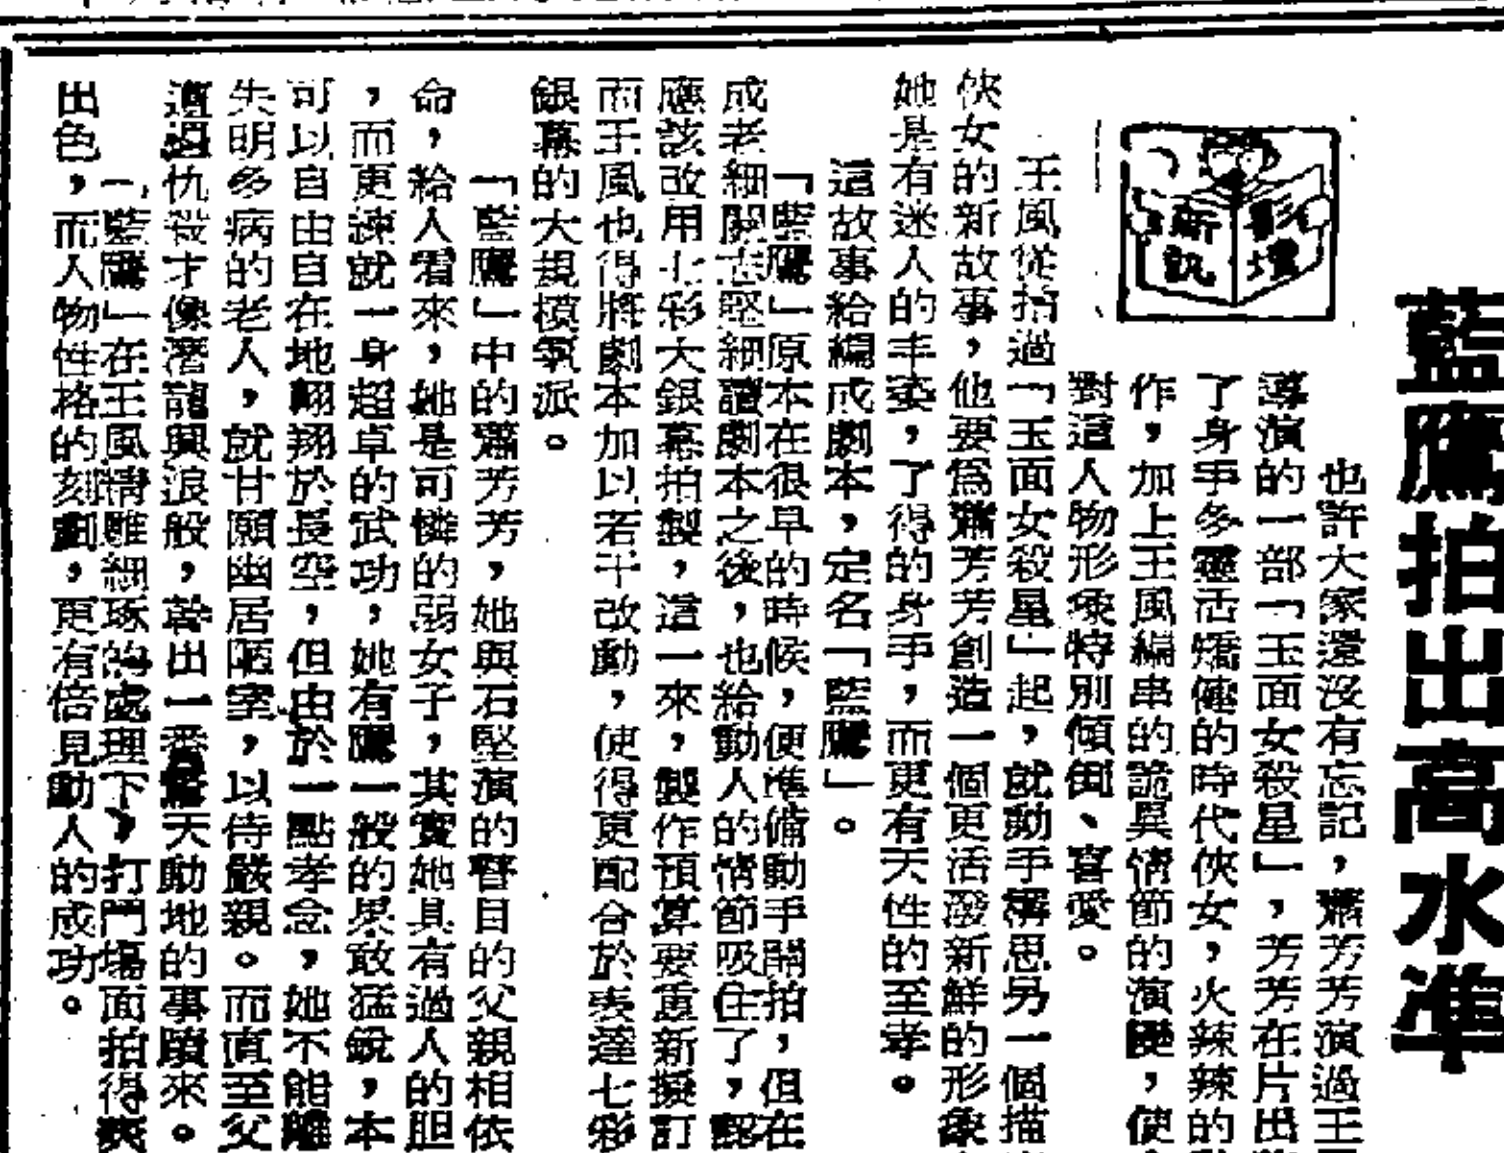 藍鷹拍出高水準
影壇
新訊
也許大家還沒有忘記，蕭芳芳演過王
導演的一部「玉面女殺星」，芳芳在片出
了身手多靈活矯健的時代俠女，火辣辣的
作，加上王風編串的詭異情節的演變，使
對這人物形象特別傾倒、喜愛。
王風從拍過「玉面女殺星」起，就動手構思另一個描
俠女的新故事，他要爲蕭芳芳創造一個更活潑新鮮的形象
她是有迷人的丰姿，了得的身手，而更有天性的至孝。
這故事給編成劇本，定名「藍鷹」。
「藍鷹」原本在很早的時候，便準備動手開拍，但在
成老細關志堅細讀劇本之後，也給動人的情節吸住了，認
應該改用七彩大銀幕拍製，這一來，製作預算要重新擬訂
而王風也得將劇本加以若干改動，使得更配合於表達七彩
銀幕的大規模氣派。
「藍鷹」中的蕭芳芳，她與石堅演的瞽目的父親相依
命，給人看來，她是可憐的弱女子，其實她具有過人的胆
，而更練就一身超卓的武功，她有鷹一般的果敢猛銳，本
可以自由自在地翱翔於長空，但由於一點孝念，她不能離
失明多病的老人，就甘願幽居陋室，以侍嚴親。而直至父
遭過仇殺才像潛龍興浪般，幹出一番驚天動地的事蹟來。
「藍鷹」在王風精雕細琢的處理下，打鬥塲面拍得爽
出色，而人物性格的刻劃，更有倍見動人的成功。